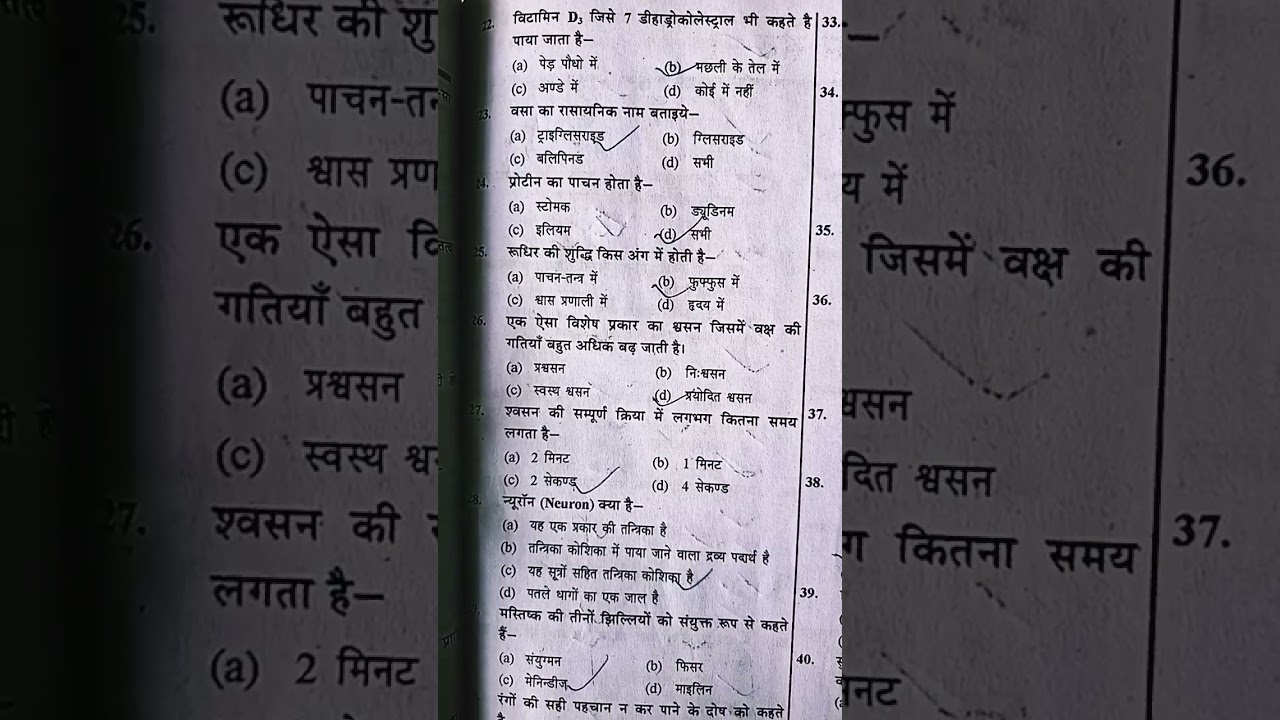 22. विटामिन D₃ जिसे 7 डीहाड्रोकोलेस्ट्राल भी कहते है
पाया जाता है–
(a) पेड़ पौधो में (b) मछली के तेल में
(c) अण्डे में (d) कोई में नहीं
23. वसा का रासायनिक नाम बताइये–
(a) ट्राइग्लिसराइड (b) ग्लिसराइड
(c) बलिपिनड (d) सभी
24. प्रोटीन का पाचन होता है–
(a) स्टोमक (b) ड्यूडिनम
(c) इलियम (d) सभी
25. रूधिर की शुद्धि किस अंग में होती है–
(a) पाचन-तन्त्र में (b) फुफ्फुस में
(c) श्वास प्रणाली में (d) हृदय में
26. एक ऐसा विशेष प्रकार का श्वसन जिसमें वक्ष की
गतियाँ बहुत अधिक बढ़ जाती है।
(a) प्रश्वसन (b) निःश्वसन
(c) स्वस्थ श्वसन (d) प्रयोदित श्वसन
27. श्वसन की सम्पूर्ण क्रिया में लगभग कितना समय
लगता है–
(a) 2 मिनट (b) 1 मिनट
(c) 2 सेकण्ड (d) 4 सेकण्ड
न्यूरॉन (Neuron) क्या है–
(a) यह एक प्रकार की तन्त्रिका है
(b) तन्त्रिका कोशिका में पाया जाने वाला द्रव्य पदार्थ है
(c) यह सूत्रों सहित तन्त्रिका कोशिका है
(d) पतले धागों का एक जाल है
मस्तिष्क की तीनों झिल्लियों को संयुक्त रूप से कहते
हैं–
(a) संयुग्मन (b) फिसर
(c) मेनिन्डीज (d) माइलिन
रंगों की सही पहचान न कर पाने के दोष को कहते
33.
34.
35.
36.
37.
38.
39.
40.
25. रूधिर की शु
(a) पाचन-तन
(c) श्वास प्रण
26. एक ऐसा वि
गतियाँ बहुत
(a) प्रश्वसन
(c) स्वस्थ श्व
27. श्वसन की
लगता है–
(a) 2 मिनट
फुस में
य में
36.
जिसमें वक्ष की
श्वसन
दित श्वसन
37.
कितना समय
नट